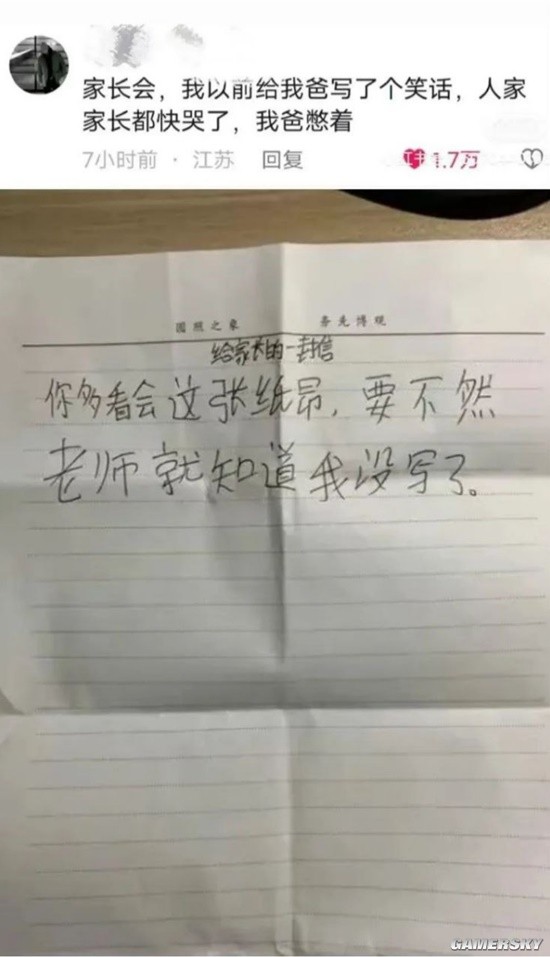 家长会，我以前给我爸写了个笑话，人家
家长都快哭了，我爸憋着
7小时前 · 江苏 回复 1.7万
圆照之象 务先博观
给家长的一封信
你多看会这张纸昂，要不然
老师就知道我没写了。
GAMERSKY